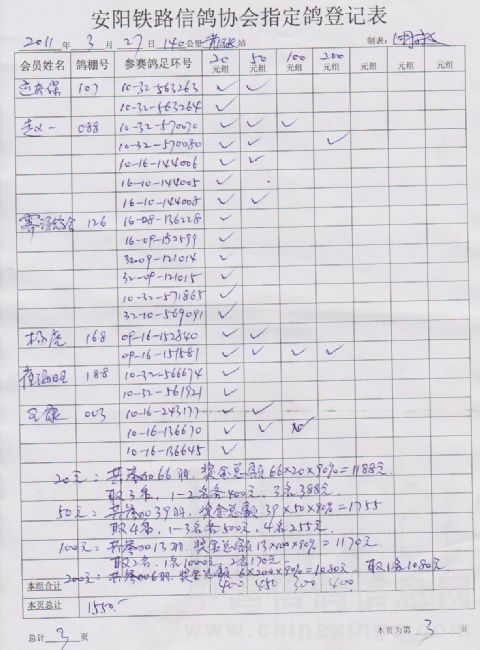 安阳铁路信鸽协会指定鸽登记表
2011 年 3 月 27 日 140公里 站 制表:
会员姓名 鸽棚号 参赛鸽足环号 20元组 50元组 100元组 200元组 元组 元组 元组
107 10-32-563263 ✓ ✓
10-32-563264 ✓ ✓
赵一 088 10-32-570070 ✓ ✓ ✓
10-32-570080 ✓ ✓ ✓
10-16-144006 ✓ ✓
16-10-144005 ✓
16-10-144008 ✓ ✓
126 16-08-136228 ✓
16-09-132599 ✓
3209-121014 ✓
32-09-121015 ✓
10-32-571865 ✓
32-10-569091 ✓
杨虎 168 09-16-152840 ✓ ✓
09-16-151581 ✓ ✓ ✓ ✓
188 10-32-566674 ✓
10-32-561921 ✓
王康 003 10-16-243177 ✓ ✓
10-16-136670 ✓ ✓
10-16-136645 ✓
20元:共参加66羽,奖金总额66×20×90%=1188元.
取3名,1-2名各400元,3名388元.
50元:共参加039羽,奖金总额39×50×90%=1755
取4名,1-3名各500元,4名255元.
100元:共参加013羽,奖金总额13×100×90%=1170元
取2名,1名1000元,2名170元
200元:共参加06羽,奖金总额6×200×90%=1080元,取1名1080元
本组合计 400 450 300 400
本页总计 1550.-
总计 3 页 本页为第 3 页
www.chinaxinge.com